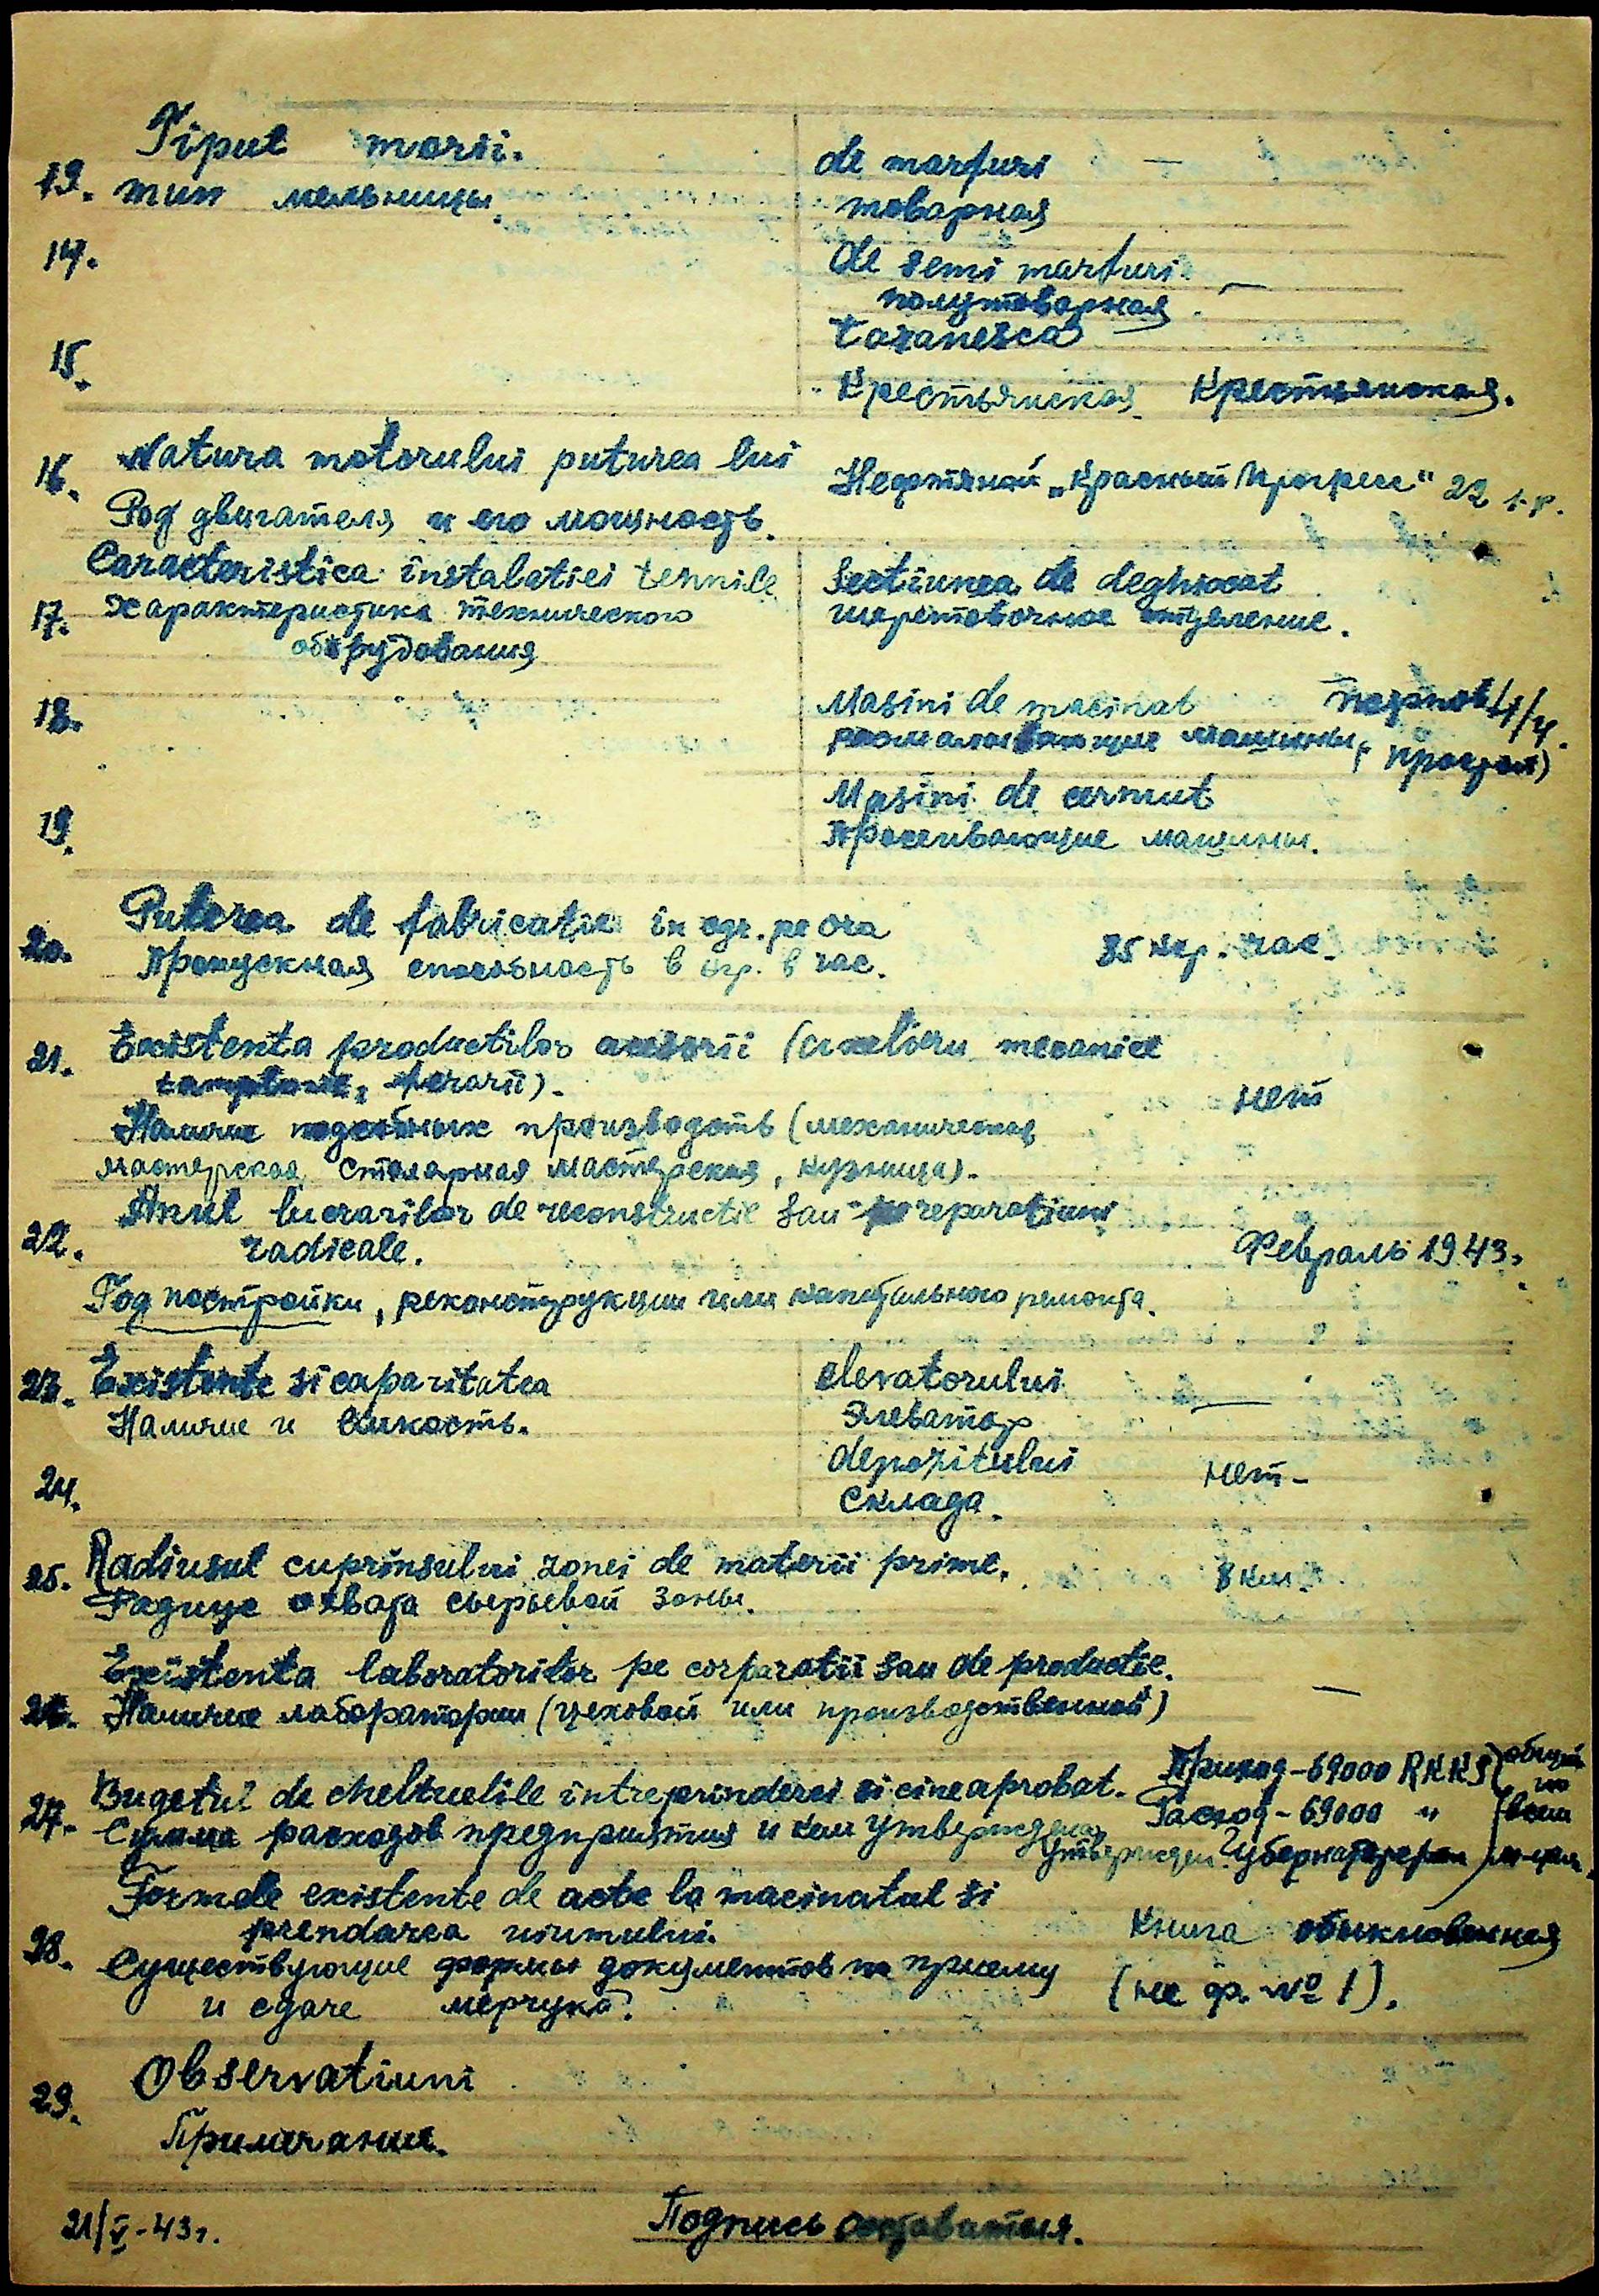 Tipul morii.
de marfuri
13. тип мельницы.
товарная
14.
de semi marfuri
полутоварная. —
15.
taranesca
Крестьянская Крестьянская.
16. Natura motorului puturea lui
Нефтяной „Красный Прогресс" 22
Род двигателя и его мощность.
Caracteristica instalatiei tehnice
Sectiunea de deghiocat
17. Характеристика технического
шеретовочное отделение.
оборудования
18.
Masini de macinat
размалывающие машины,
простой)
19.
Masini de cernut
Просеивающие машины.
20. Puterea de fabricatie in cgr. pe ora
85 кгр. час.
Пропускная способность в кгр. в час.
21. Existenta productilor (atelieru mecanice
ferarii).-
нет
Наличие подсобных производств (механическая
мастерская, столярная мастерская, кузница).-
22. Anul lucrarilor de reconstructie sau reparatiuni
radicale.
Февраль 1943.
Год постройки, реконструкции или капитального ремонта.
23. Existente si caparitatea
elevatorului
—
Наличие и емкость.
Элеватор
24.
depozitului
нет-
Склада.
25. Radiusul cuprinsului zonei de materii prime.
8 км.
Радиус охвата сырьевой зоны.
Existenta laboratorilor pe corparatii sau de productie.
—
26. Наличие лаборатории (цеховой или производственной)
Приход-69000 RKKS (общий
по
27. Bugetul de cheltuelile intreprinderei si cine aprobat.
Расход- 69000 "
всем
Сумма расходов предприятия и кем утверждена
Утвержден Губернаторером
Formele existente de acte la macinatul si
prendarea uiumului.
Книга обыкновенная
28. Существующие формы документов по приему
(не ф. № 1).
и сдаче мерчука.
29. Observatiuni
Примечание.
21/V-43г.
Подпись составителя.